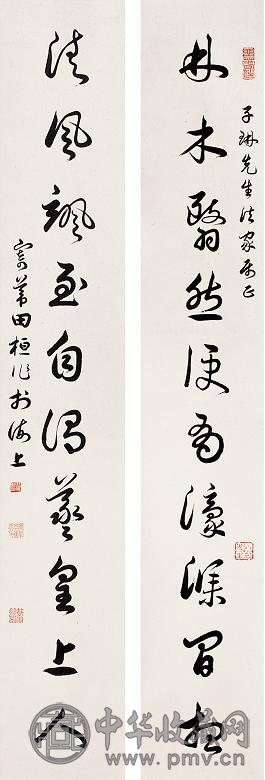 子琳先生法家屬正
林木翳然便有濠濮間想
清風颯至自謂羲皇上人
寄葦田桓作於海上
中华收藏网
www.pmv.cn